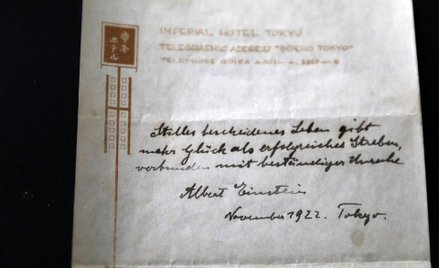 帝国
ホテル
IMPERIAL HOTEL TOKYO
TELEGRAPHIC ADDRESS "IMPEHO TOKYO"
TELEPHONE GINZA
Stilles bescheidenes Leben gibt
mehr Glück als erfolgreiches Streben,
verbunden mit beständiger Unruhe.
Albert Einstein
November 1922. Tokyo.